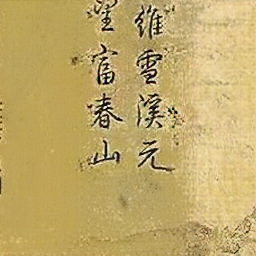 維雪溪元
望富春山